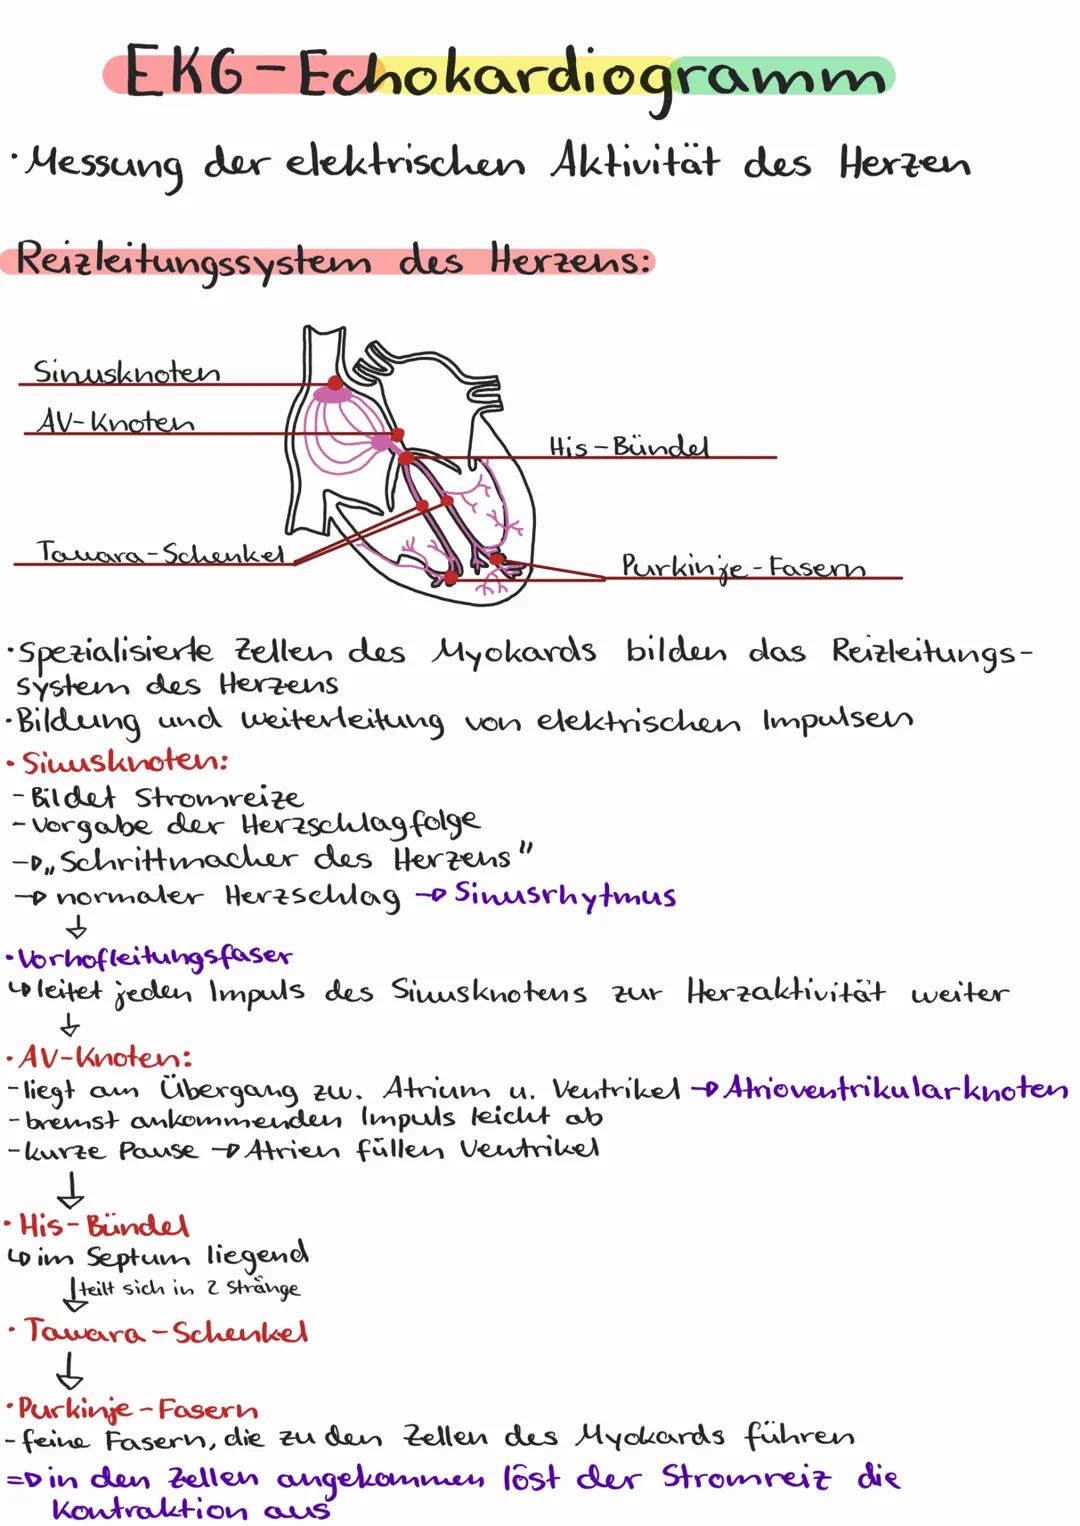 EKG-Echokardiogramm
·Messung der elektrischen Aktivität des Herzen
Reizleitungssystem des Herzens:
Sinusknoten
AV-Knoten
His-Bündel
Tawara-Schenkel
Purkinje-Fasern
·Spezialisierte Zellen des Myokards bilden das Reizleitungs-
system des Herzens
·Bildung und weiterleitung von elektrischen Impulsen
·Sinusknoten:
-Bildet Stromreize
-Vorgabe der Herzschlagfolge
→„Schrittmacher des Herzens"
→ normaler Herzschlag → Sinusrhytmus
↓
·Vorhofleitungsfaser
↳leitet jeden Impuls des Sinusknotens zur Herzaktivität weiter
↓
·AV-Knoten:
-liegt am Übergang zw. Atrium u. Ventrikel → Atrioventrikularknoten
-bremst ankommenden Impuls leicht ab
-kurze Pause → Atrien füllen Ventrikel
↓
·His-Bündel
↳im Septum liegend
↓teilt sich in 2 Stränge
·Tawara-Schenkel
↓
·Purkinje-Fasern
-feine Fasern, die zu den Zellen des Myokards führen
⇒in den Zellen angekommen löst der Stromreiz die
Kontraktion aus